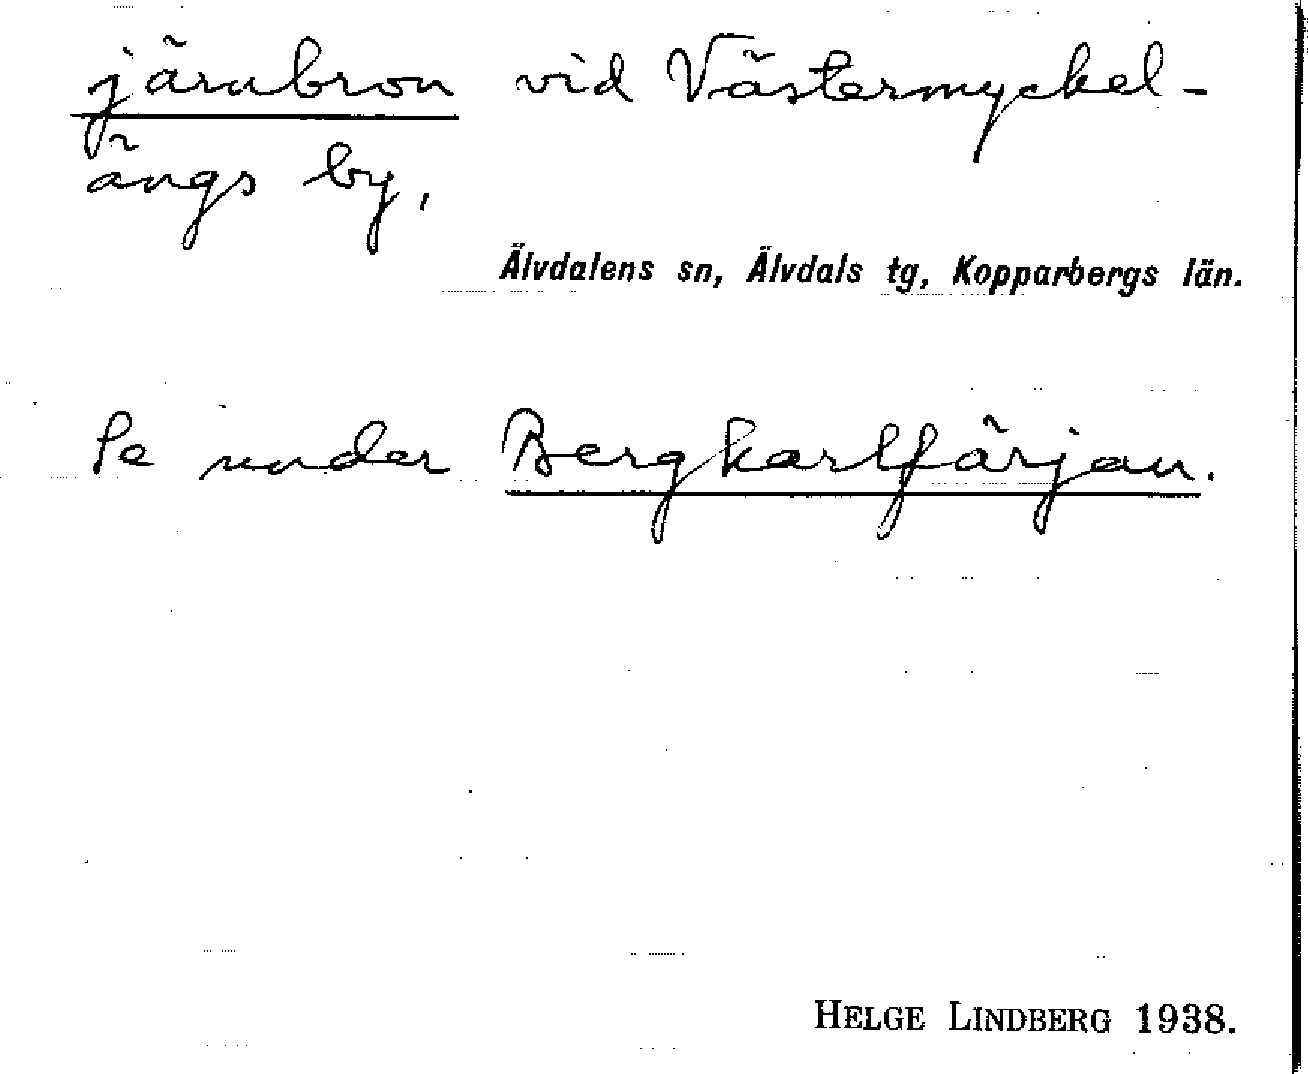 järnbron vid Västermyckel-
ängs by,
Älvdalens sn, Älvdals tg, Kopparbergs län.
Se under Bergkarlfärjan.
HELGE LINDBERG 1938.